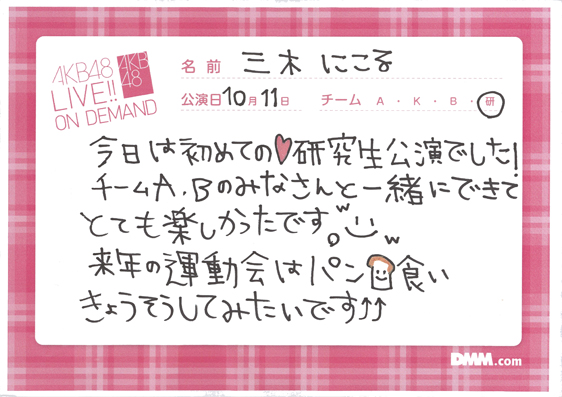 AKB48
LIVE!!
ON DEMAND
AKB
48
名前 三木 にこる
公演日 10月11日 チーム A・K・B・研
今日は初めての研究生公演でした!
チームA.Bのみなさんと一緒にできて
とても楽しかったです。w
w
来年の運動会はパン食い
きょうそうしてみたいです↑↑
DMM.com